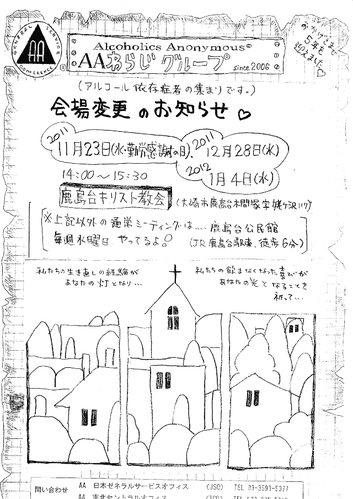 GENERAL SERVICE
AA
CONFERENCE
Alcoholics Anonymous®
AAわらじグループ
since 2006
おかげさまで
5年を
迎えました♡
(アルコール依存症者の集まりです。)
会場変更のお知らせ♡
2011
11月23日(水・勤労感謝の日)、
2011
12月28日(水)
2012
1月4日(水)
14:00〜15:30
鹿島台キリスト教会
(大崎市鹿島台木間塚字
※上記以外の通常ミーティングは…… 鹿島台公民館
毎週水曜日 やってるよ!
(JR鹿島台駅東、徒歩6分)
私たちの生き直しの経験が
あなたの灯となり…
私たちの飲まなくなった喜びが
あなたの光となることを
祈って…
問い合わせ AA 日本ゼネラルサービスオフィス (JSO) TEL 03-3590-5377
AA 東北セントラルオフィス